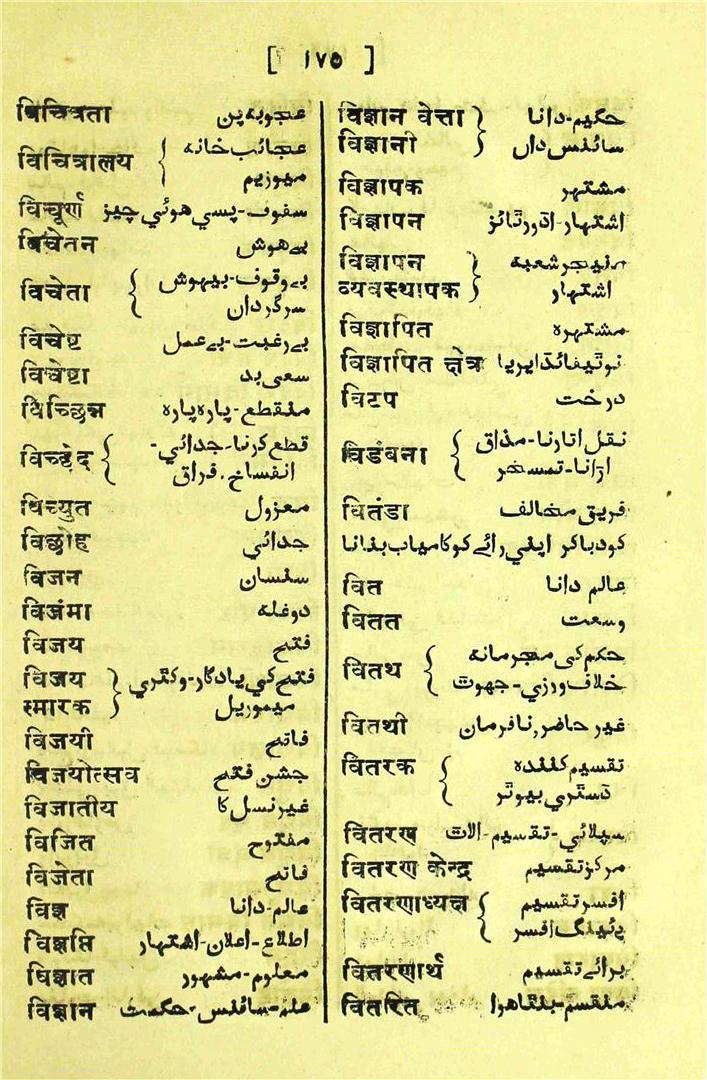 [ ١٧٥ ]
विचित्रता عجوبه پن
विचित्रालय { عجائب خانه
ميوزيم
विचूर्ण سفوف-پسي هوئي چيز
विचेतन بے هوش
विचेता { بے وقوف-بيهوش
سرگردان
विचेष्ट بے رغبت-بے عمل
विचेष्टा سعی بد
विच्छिन्न منقطع-پاره پاره
विच्छेद { قطع کرنا-جدائي-
انفساخ-فراق
विच्युत معزول
विछोह جدائي
विजन سنسان
विजंमा دوغله
विजय فتح
विजय } فتح کي يادگار-وکٹري
स्मारक } ميموريل
विजयी فاتح
विजयोत्सव جشن فتح
विजातीय غير نسل کا
विजित مفتوح
विजेता فاتح
विज्ञ عالم-دانا
विज्ञप्ति اطلاع-اعلان-اشتہار
विज्ञात معلوم-مشہور
विज्ञान علم-سائنس-حکمت
विज्ञान वेत्ता } حکيم-دانا
विज्ञानी } سائنس داں
विज्ञापक مشتہر
विज्ञापन اشتہار-اڈورٹائز
विज्ञापन } منيجر شعبه
व्यवस्थापक } اشتہار
विज्ञापित مشتہره
विज्ञापित क्षेत्र نوٹيفائڈ ايريا
विटप درخت
विडंबना { نقل اتارنا-مذاق
اڑانا-تمسخر
वितंडा فريق مخالف
کو دبا کر اپني رائے کو کامياب بنانا
वित عالم دانا
वितत وسعت
वितथ { حکم کی مجرمانه
خلاف ورزي-جھوٹ
वितथी غير حاضر,نافرمان
वितरक { تقسيم کننده
ڈسٹري بيوٹر
वितरण سپلائي-تقسيم-الاٹ
वितरण केन्द्र مرکز تقسيم
वितरणाध्यक्ष { افسر تقسيم
افسر
वितरणार्थ برائے تقسيم
वितरित منقسم-بٹتا هوا